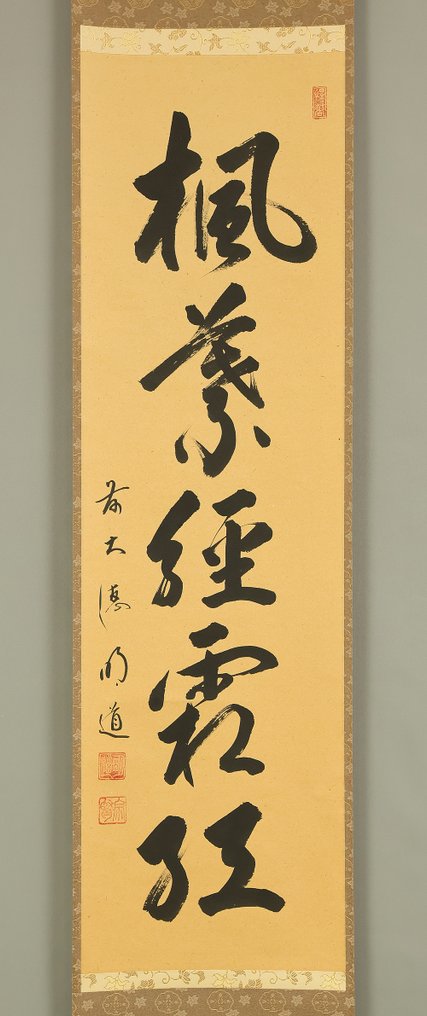 楓葉經霜紅
前大德明道